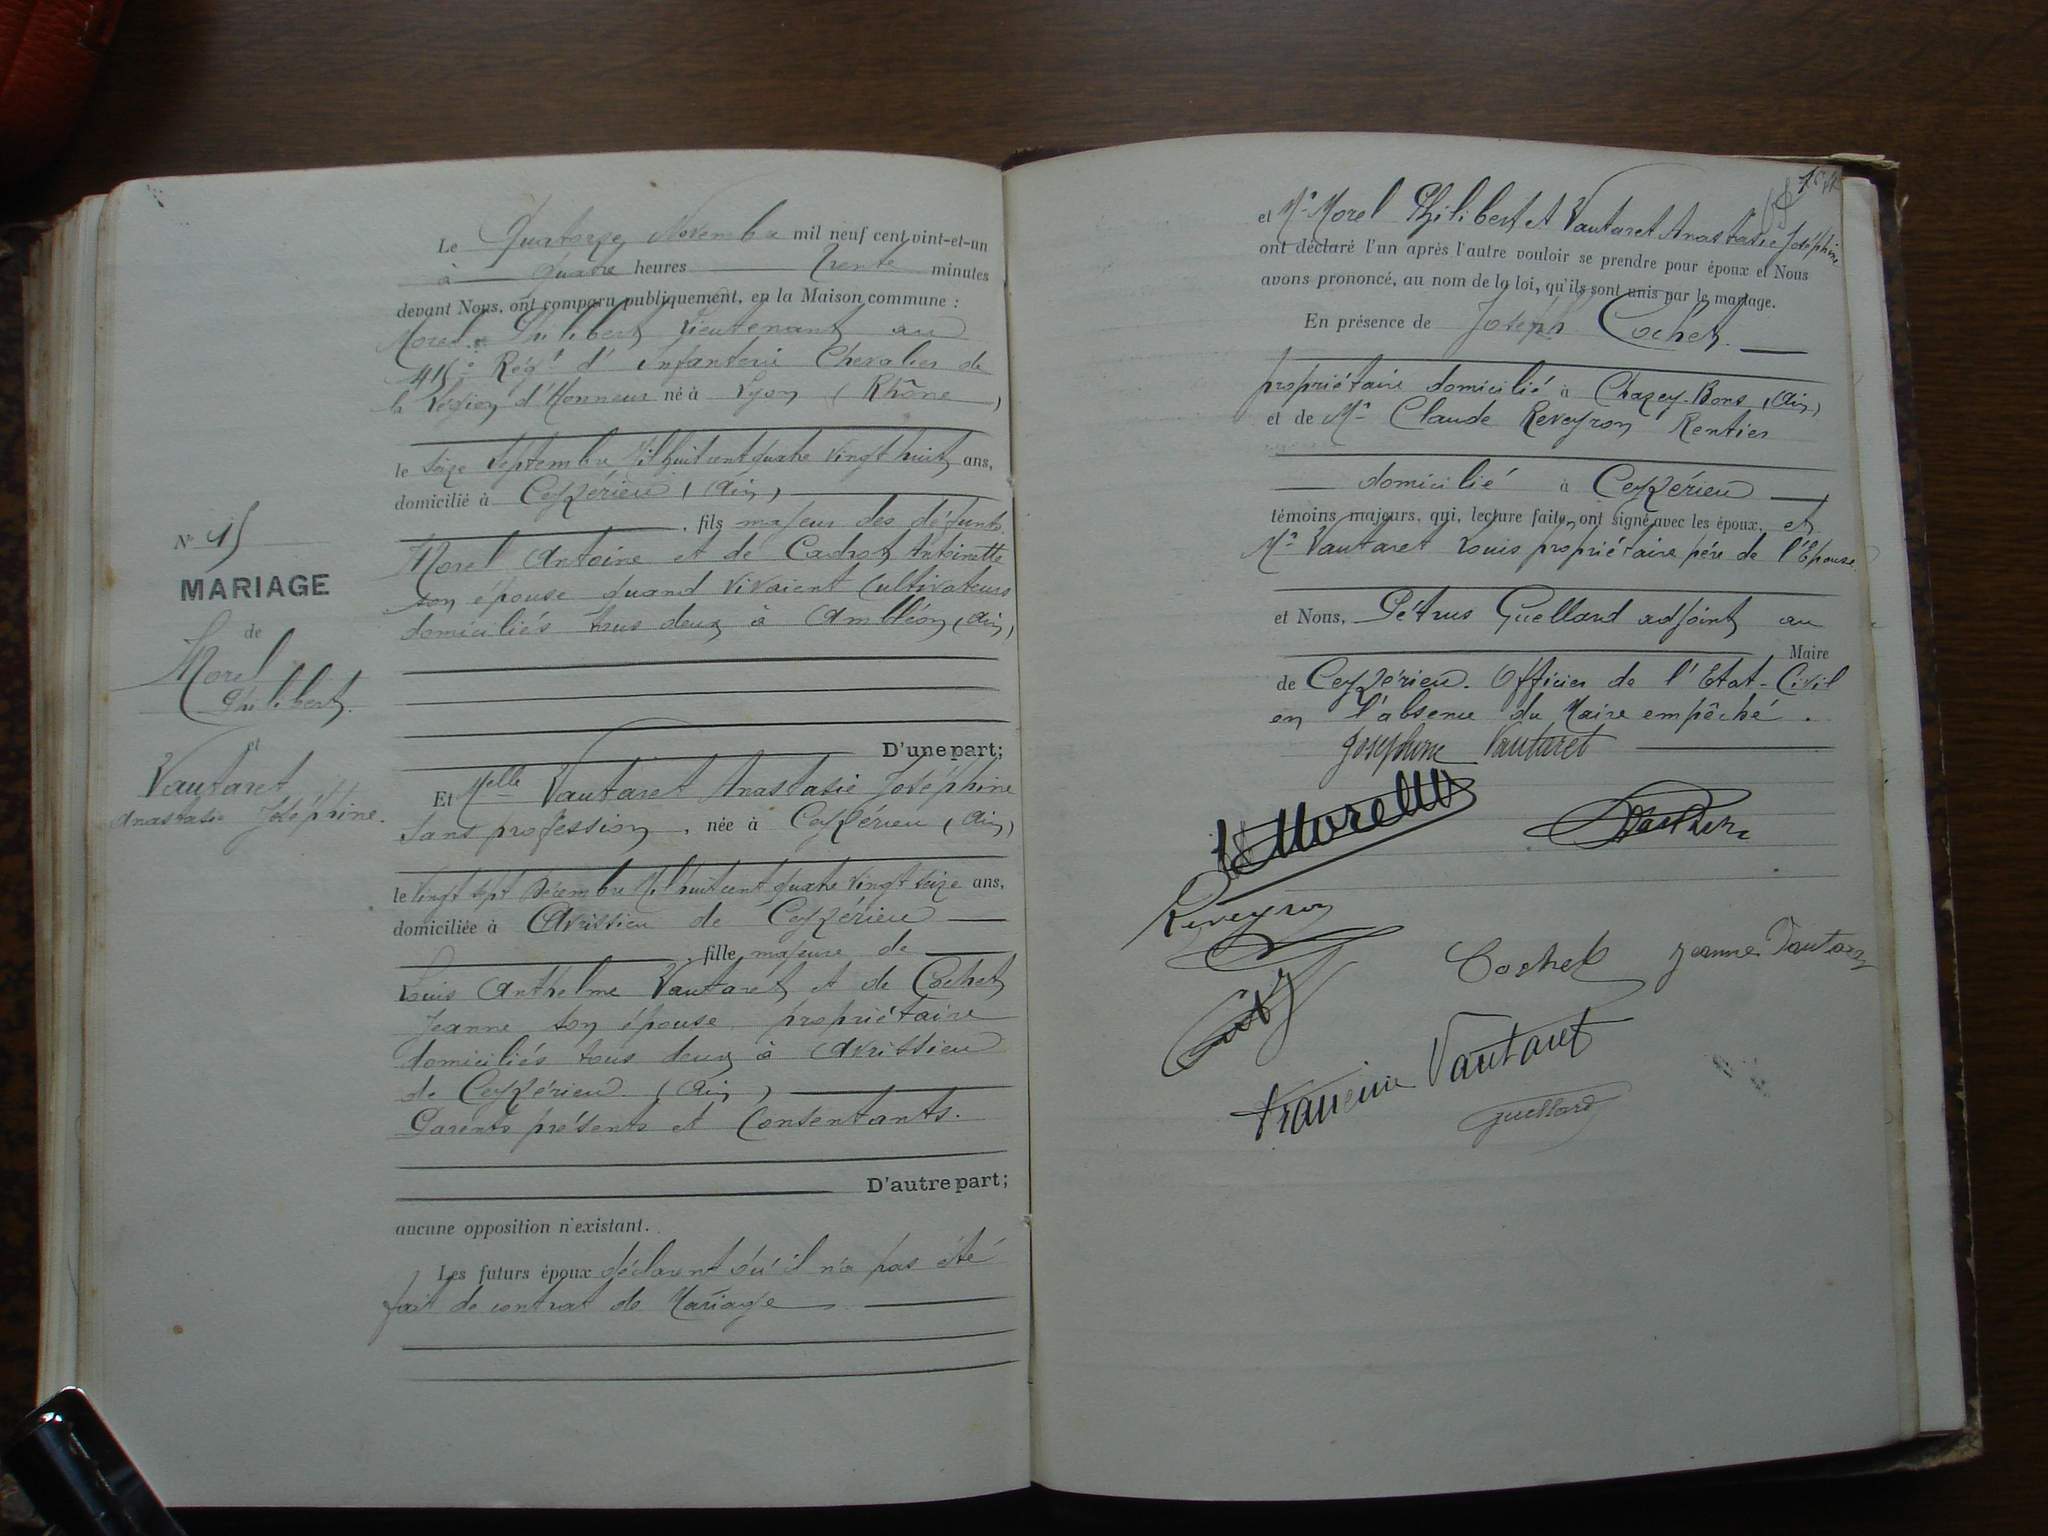 N° 15
MARIAGE
de
Morel
Philibert.
et
Vautaret
Anastasie Joséphine.
Le Quatorze Novembre mil neuf cent vint-et-un
à quatre heures trente minutes
devant Nous, ont comparu publiquement, en la Maison commune :
Morel Philibert Lieutenant au
Régt d'infanterie Chevalier de
la Légion d'Honneur né à Lyon (Rhône)
le seize Septembre Mil huit cent quatre vingt huit ans,
domicilié à Ceyzérieu (Ain)
, fils majeur des défunts
Morel Antoine et de Antoinette
son épouse quand vivaient Cultivateurs
domiciliés tous deux à Ambléon (Ain)
D'une part;
Et Melle Vautaret Anastasie Joséphine
Sans profession, née à Ceyzérieu (Ain)
le vingt sept Décembre Mil huit cent quatre vingt seize ans,
domiciliée à Avrissieu de Ceyzérieu
, fille majeure de
Louis Anthelme Vautaret et de Cochet
Jeanne son épouse propriétaire
domiciliés tous deux à Avrissieu
de Ceyzérieu (Ain)
Parents présents et Consentants.
D'autre part;
aucune opposition n'existant.
Les futurs époux déclarent qu'il n'a pas été
fait de contrat de Mariage
et Mr Morel Philibert et Vautaret Anastasie Joséphine
ont déclaré l'un après l'autre vouloir se prendre pour époux et Nous
avons prononcé, au nom de la loi, qu'ils sont unis par le mariage.
En présence de Joseph Cochet
propriétaire domicilié à Chazey-Bons (Ain)
et de Mr Claude Reveyron Rentier
domicilié à Ceyzérieu
témoins majeurs, qui, lecture faite, ont signé avec les époux, et
Mr Vautaret Louis propriétaire père de l'Epouse.
et Nous, Pétrus Guellard adjoint au
Maire
de Ceyzérieu. Officier de l'Etat-Civil
en l'absence du Maire empêché.
Joséphine Vautaret
Morel
Reveyron
Cochet Jeanne Vautaret
Francine Vautaret
Guellard